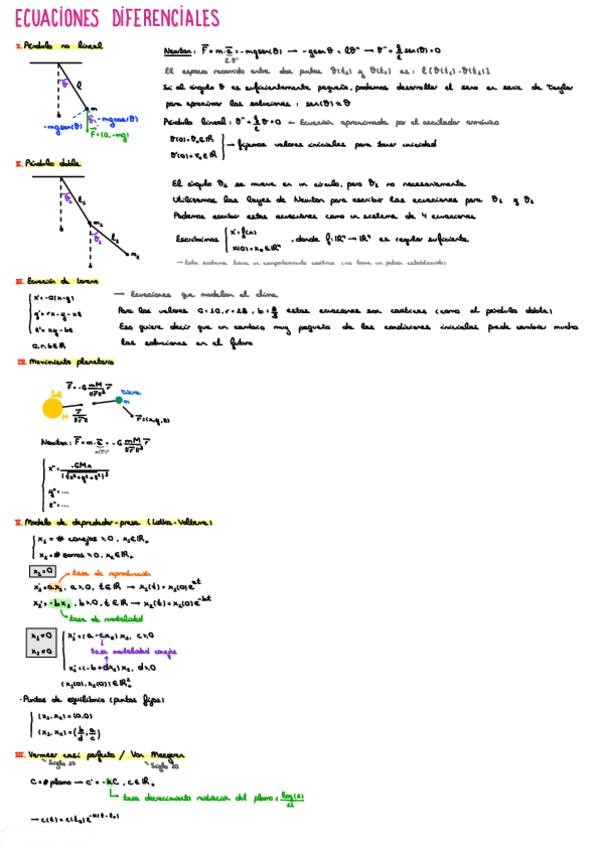 ECUACIONES DIFERENCIALES
I. Péndulo no lineal
Newton: F = m·a = -mgsen(θ) → -gsenθ = lθ'' → θ'' + g/l sen(θ) = 0
El espacio recorrido entre dos puntos θ(t₁) y θ(t₂) es: l[θ(t₂)-θ(t₁)]
Si el ángulo θ es suficientemente pequeño, podemos desarrollar el seno en serie de Taylor
para aproximar las soluciones: sen(θ) ≈ θ
Péndulo lineal: θ'' + g/l θ = 0 ← Ecuación aproximada por el oscilador armónico
→ fijamos valores iniciales para tener unicidad
l
m
-mgsen(θ)
-mgcos(θ)
F = (0, -mg)
II. Péndulo doble
El ángulo θ₁ se mueve en un círculo, pero θ₂ no necesariamente
Utilizamos las leyes de Newton para escribir las ecuaciones para θ₁ y θ₂
Podemos escribir estas ecuaciones como un sistema de 4 ecuaciones
Escribimos { x' = f(x) x(0) = x₀ ∈ ℝⁿ , donde f: ℝⁿ → ℝⁿ es regular suficiente
→ Este sistema tiene un comportamiento caótico (no tiene un patrón establecido)
III. Ecuación de Lorenz
→ Ecuaciones que modelan el clima
x' = -σ(x-y)
y' = rx - y - xz
z' = xy - bz
σ, r, b ∈ ℝ
Para los valores σ = 10, r = 28, b = 8/3 estas ecuaciones son caóticas (como el péndulo doble)
Eso quiere decir que un cambio muy pequeño de las condiciones iniciales puede cambiar mucho
las soluciones en el futuro
IV. Movimiento planetario
Sol
M
Tierra
m
r = (x, y, z)
x'' = -GMx / (√(x²+y²+z²))³
y'' = ...
z'' = ...
V. Modelo de depredador-presa (Lotka-Volterra)
x₁ = # conejos ≥ 0, x₁ ∈ ℝ₊
x₂ = # zorros ≥ 0, x₂ ∈ ℝ₊
tasa de reproducción
x₁' = ax₁, a > 0, t ∈ ℝ → x₁(t) = x₁(0)e^at
x₂' = -bx₂, b > 0, t ∈ ℝ → x₂(t) = x₂(0)e^-bt
tasa de mortalidad
x₁' = (a - cx₂)x₁, c > 0
tasa mortalidad conejos
x₂' = (-b + dx₁)x₂, d > 0
(x₁(0), x₂(0)) ∈ ℝ²₊
· Puntos de equilibrio (puntos fijos)
(x₁, x₂) = (0,0)
(x₁, x₂) = (b/d, a/c)
Vermeer casi perfecto / Van Meegren
Siglo 17
Siglo 20
C = # plomo → c' = -kC, c ∈ ℝ₊
tasa decrecimiento radiación del plomo
→ c(t) = c(t₀)e^-k(t-t₀)